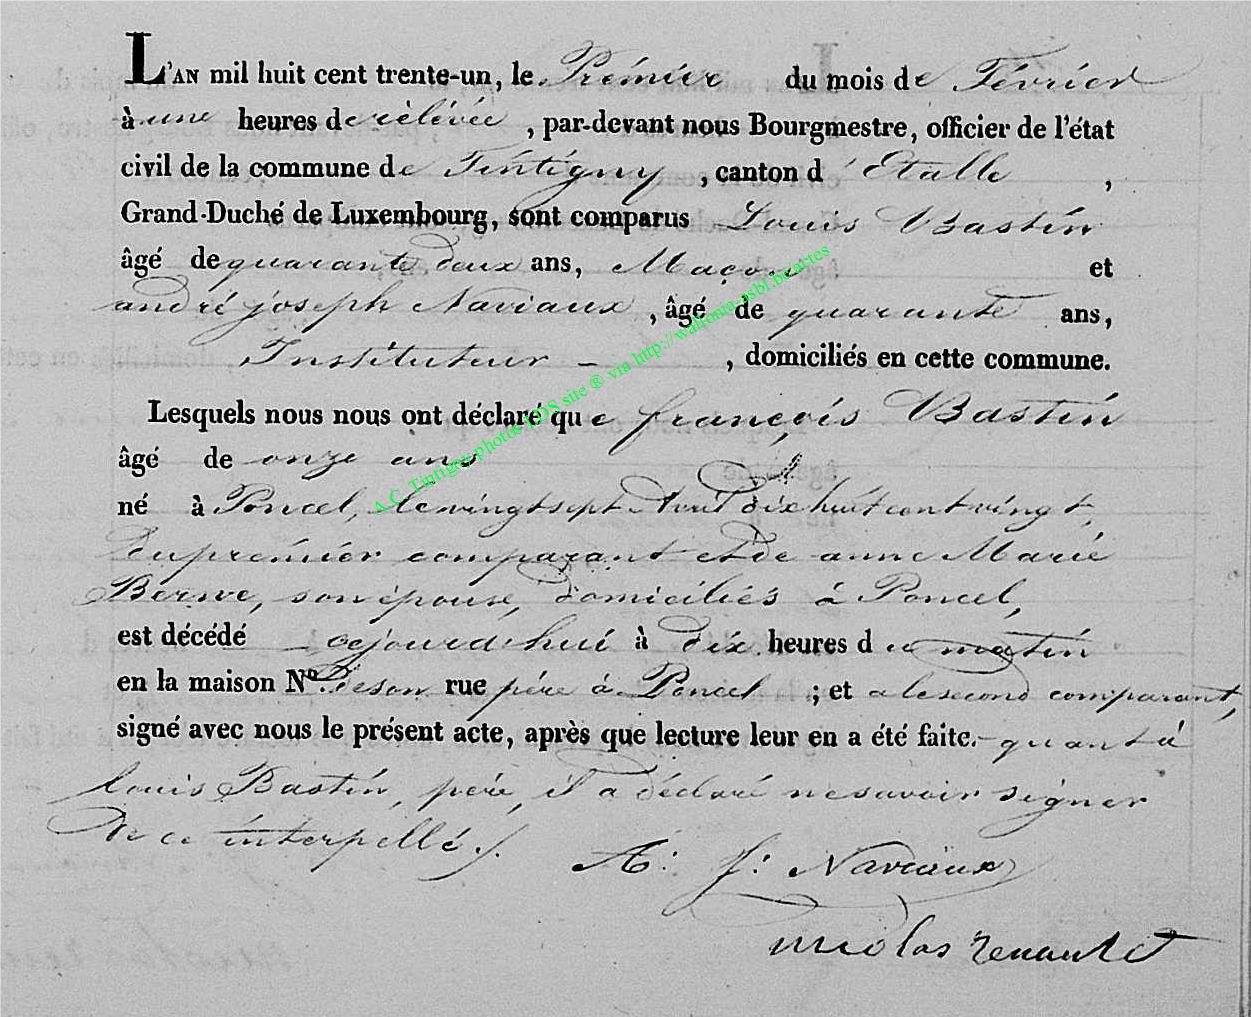 L'AN mil huit cent trente-un, le Prémiér du mois de Février
à une heures de rèlévée, par-devant nous Bourgmestre, officier de l'état
civil de la commune de Tintigny, canton d'Etalle,
Grand-Duché de Luxembourg, sont comparus Louis Bastin
âgé de quarante deux ans, Maçon et
andré joseph Naviaux, âgé de quarante ans,
Instituteur -, domiciliés en cette commune.
Lesquels nous nous ont déclaré que françois Bastin
âgé de onze ans
né à Poncel, le vingt sept Avril dix huit cent vingt,
du prémiér comparant et de anne Marie
Berwe, son épouse, domiciliés à Poncel,
est décédé aujourd'hui à dix heures du matin
en la maison No. de son rue pére à Poncel ; et a le second comparant,
signé avec nous le présent acte, après que lecture leur en a été faite. - quant à
louis Bastin, pére, il a déclaré ne savoir signer
de ce interpellé ./.
A: J: Naviaux
nicolas
A.C. Tintigny photos LDS site ® via http://wallonia-asbl.be/actes